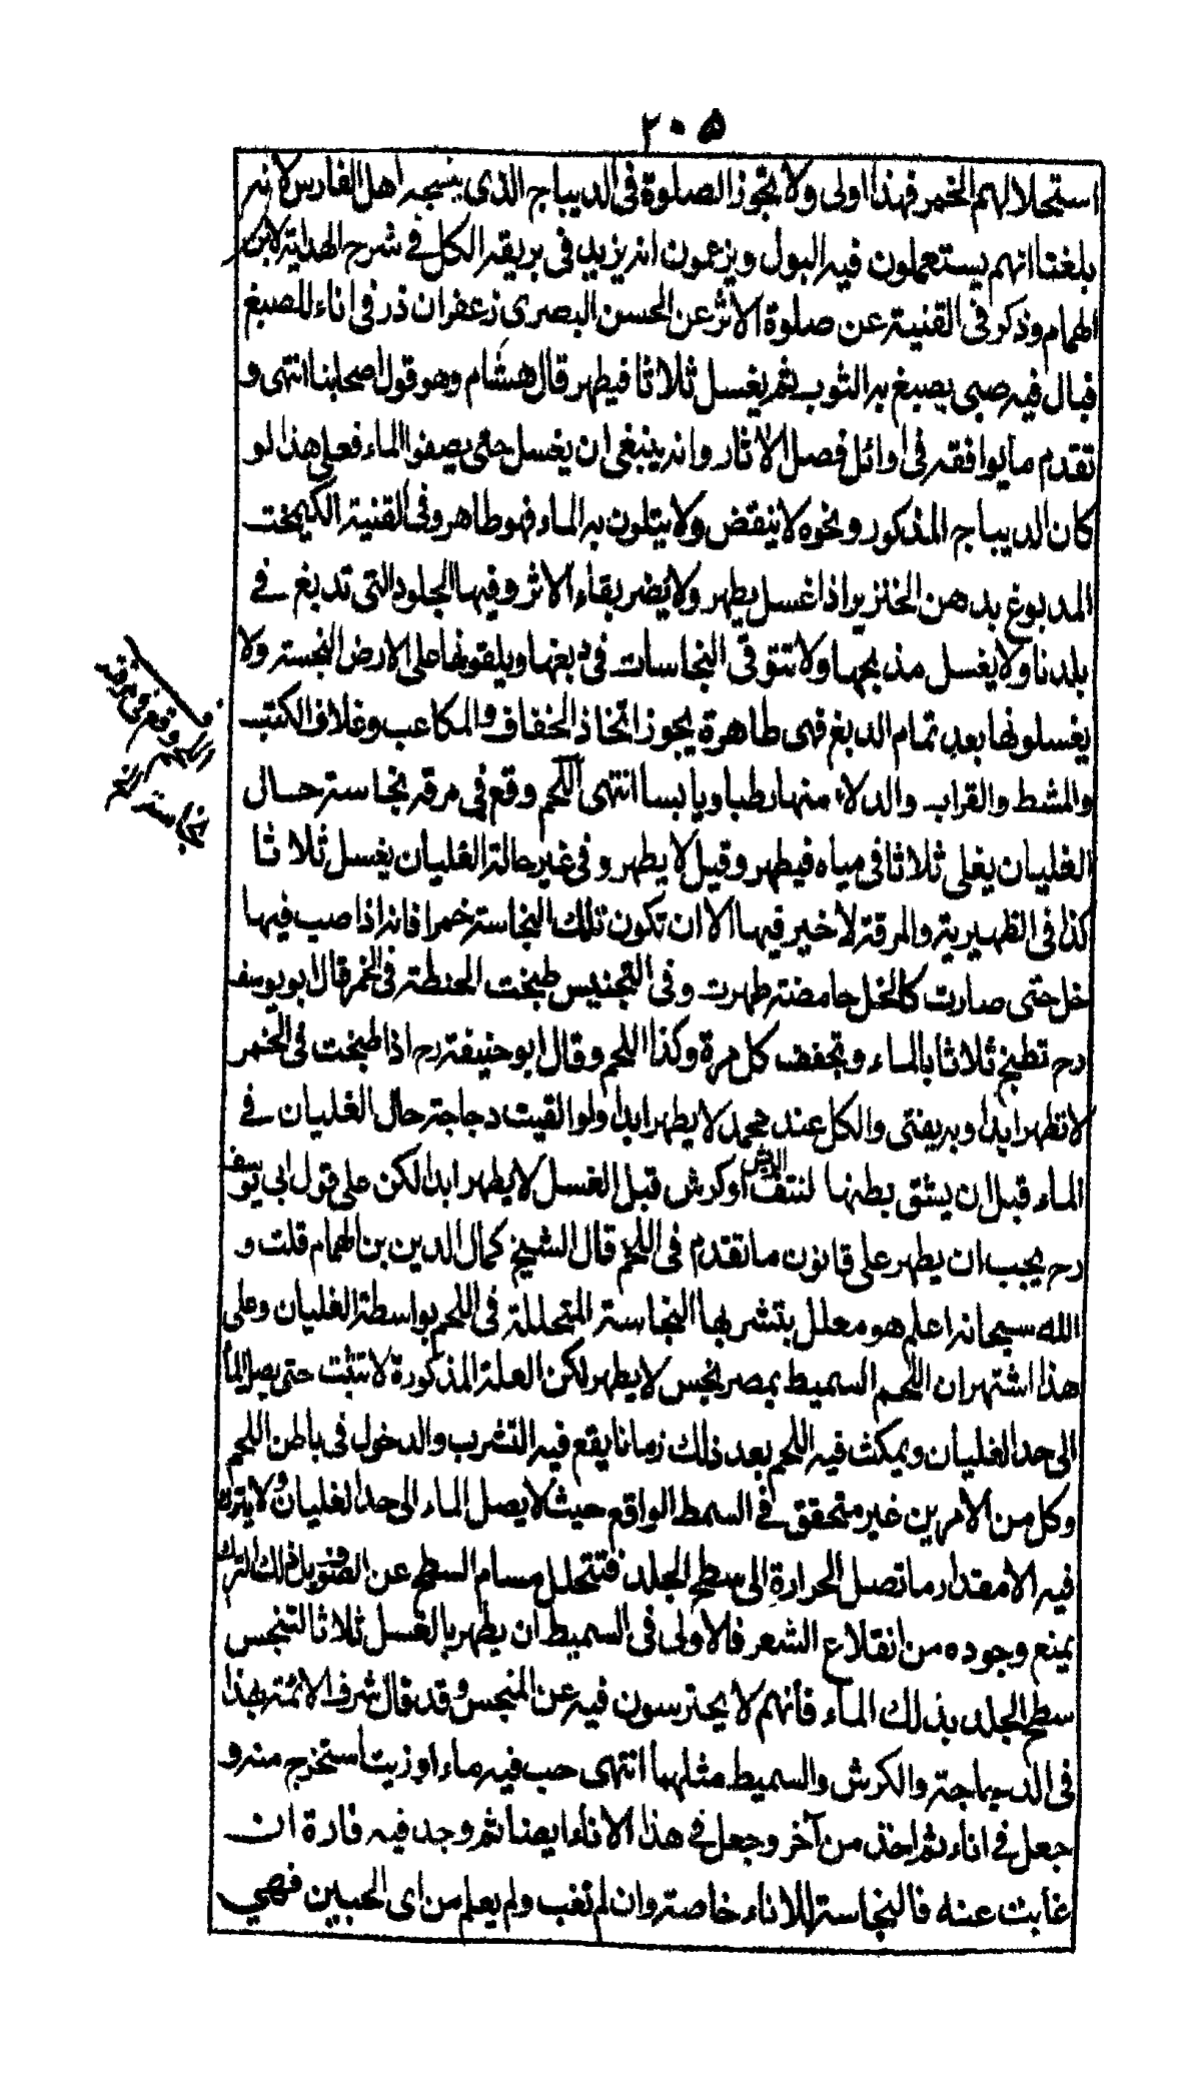 ٢٠٥
استحلالهم الخمر فهذا اولى ولا تجوز الصلوة فى الديباج الذى ينسجه اهل الفارس لانه
بلغنا انهم يستعملون فيه البول ويزعمون انه يزيد فى بريقه الكل فى شرح الهداية لابن
الهمام وذكر فى القنية عن صلوة الاثر عن الحسن البصرى زعفران ذر فى اناء للصبغ
فبال فيه صبى يصبغ به الثوب ثم يغسل ثلاثا فيطهر قال هشام وهو قول اصحابنا انتهى و
تقدم ما يوافقه فى اوائل فصل الاثار وانه ينبغى ان يغسل حتى يصفوا الماء فعلى هذا لو
كان الديباج المذكور ونحوه لا ينقض ولا يتلون به الماء فهو طاهر وفى القنية الكيمخت
المدبوغ بدهن الخنزير اذا غسل يطهر ولا يضر بقاء الاثر وفيها الجلود التى تدبغ فى
بلدنا ولا يغسل مذبحها ولا تتوقى النجاسات فى دبغها ويلقونها على الارض النجسة ولا
يغسلونها بعد تمام الدبغ فهى طاهرة يجوز اتخاذ الخفاف والمكاعب وغلاف الكتب
والمشط والقراب والدلاء منها رطبا ويابسا انتهى اللحم وقع فى مرقه نجاسة حال
الغليان يغلى ثلاثا فى مياه فيطهر وقيل لا يطهر وفى غير حالة الغليان يغسل ثلاثا
كذا فى الظهيرية والمرقة لا خير فيها الا ان تكون تلك النجاسة خمرا فانه اذا صب فيها
خل حتى صارت كالخل حامضة طهرت وفى التجنيس طبخت الحنطة فى الخمر قال ابو يوسف
رح تطبخ ثلاثا بالماء وتجفف كل مرة وكذا اللحم وقال ابو حنيفة رح اذا طبخت فى الخمر
لا تطهر ابدا وبه يفتى والكل عند محمد لا يطهر ابدا ولو القيت دجاجة حال الغليان فى
الماء قبل ان يشق بطنها لنتف الريش او كرش قبل الغسل لا يطهر ابدا لكن على قول ابى يوسف
رح يجب ان يطهر على قانون ما تقدم فى اللحم قال الشيخ كمال الدين بن الهمام قلت و
الله سبحانه اعلم هو معلل بتشربها النجاسة المتحللة فى اللحم بواسطة الغليان وعلى
هذا اشتهر ان اللحم السميط بمصر نجس لا يطهر لكن العلة المذكورة لا تثبت حتى يصل الما
الى حد الغليان ويمكث فيه اللحم بعد ذلك زمانا يقع فيه التشرب والدخول فى باطن اللحم
وكل من الامرين غير متحقق فى السمط الواقع حيث لا يصل الماء الى حد الغليان ولا يترك
فيه الا مقدار ما تصل الحرارة الى سطح الجلد فتتحلل مسام السطح عن الصوف بل ذلك الترك
يمنع وجوده من انقلاع الشعر فالاولى فى السميط ان يطهر بالغسل ثلاثا لتنجس
سطح الجلد بذلك الماء فانهم لا يحترسون فيه عن المنجس وقد قال شرف الائمة بهذا
فى الدجاجة والكرش والسميط مثلهما انتهى حب فيه ماء او زيت استخرج منه و
جعل فى اناء ثم اخذ من آخر وجعل فى هذا الاناء ايضا ثم وجد فيه فارة ان
غابت عنه فالنجاسة للاناء خاصة وان لم تغب ولم يعلم من اى الحبين فهى
اللحم وقع فى مرقه
نجاسة الخ